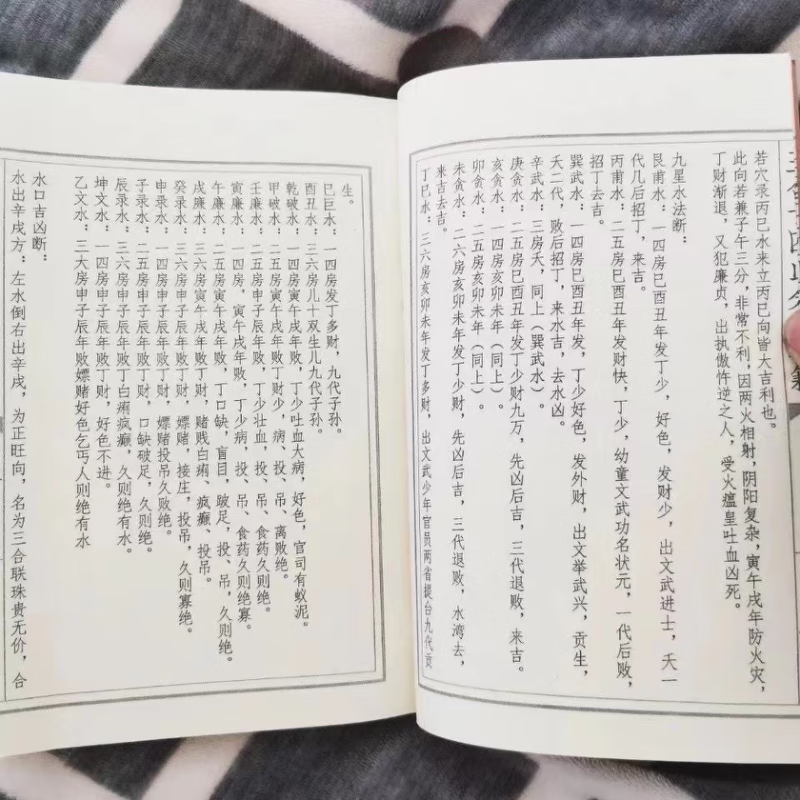 若穴录丙巳水来立丙巳向皆大吉利也。
此向若兼子午三分，非常不利，因两火相射，阴阳复杂，寅午戌年防火灾，
丁财渐退，又犯廉贞，出执傲忤逆之人，受火瘟皇吐血凶死。
九星水法断：
艮甫水：一四房巳酉丑年发丁少，好色，发财少，出文武进士，夭一
代几后招丁，来吉。
丙甫水：二五房巳酉丑年发财快，丁少，幼童文武功名状元，一代后败，
招丁去吉。
巽武水：一四房巳酉丑年发，丁少好色，发外财，出文举武兴，贡生，
夭二代，败后招丁，来水吉，去水凶。
辛武水：三房夭，同上（巽武水）。
庚贪水：二五房巳酉丑年发丁少财九万，先凶后吉，三代退败，来吉。
亥贪水：一四房亥卯未年（同上）。
卯贪水：二五房亥卯未年（同上）。
未贪水：二六房亥卯未年发丁少财，先凶后吉，三代退败，水湾去，
来吉去吉。
丁巳水：三六房亥卯未年发丁多财，出文武少年官员两省提台九代贡
生。
巳巨水：一四房发丁多财，九代子孙。
酉丑水：三六房儿十双生儿九代子孙。
乾破水：一四房寅午戌年败，丁少吐血大病，好色，官司有蚁泥。
甲破水：二五房寅午戌年败丁财少，病、投、吊、离败绝。
壬廉水：二五房寅午戌年败，丁少壮血，投、吊、食药久则绝。
寅廉水：一四房，寅午戌年败，丁少病，投、吊、食药久则绝寡。
午廉水：二五房寅午戌年败，丁口缺，盲目，跛足，投、吊，久则绝。
戌廉水：三六房寅午戌年败丁财，赌贱白痢、疯癫、投吊。
癸录水：三六房申子辰年败丁财，嫖赌，接庄，投吊，久则寡绝。
申录水：一四房申子辰年败丁财，嫖赌投吊久败绝。
子录水：二五房申子辰年败丁财，口缺破足，久则绝。
辰录水：三六房申子辰年败丁白痢疯癫，久则绝有水。
坤文水：一四房申子辰年败丁财，好色不进。
乙文水：三大房申子辰年败嫖赌好色乞丐人则绝有水
水口吉凶断：
水出辛戌方：左水倒右出辛戌，为正旺向，名为三合联珠贵无价，合